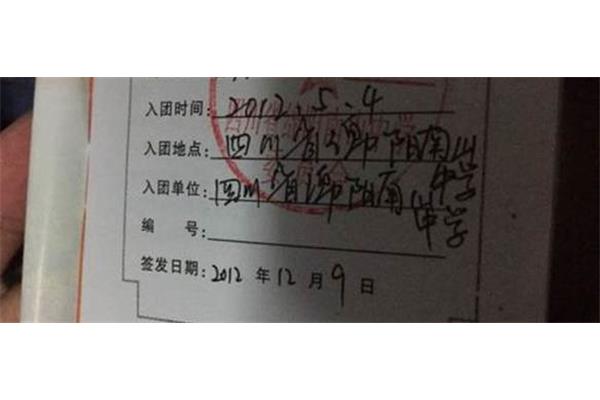 入团时间：2012.5.4
入团地点：四川省绵阳南山中学
入团单位：四川省绵阳南山中学
编 号：
签发日期：2012年12月9日